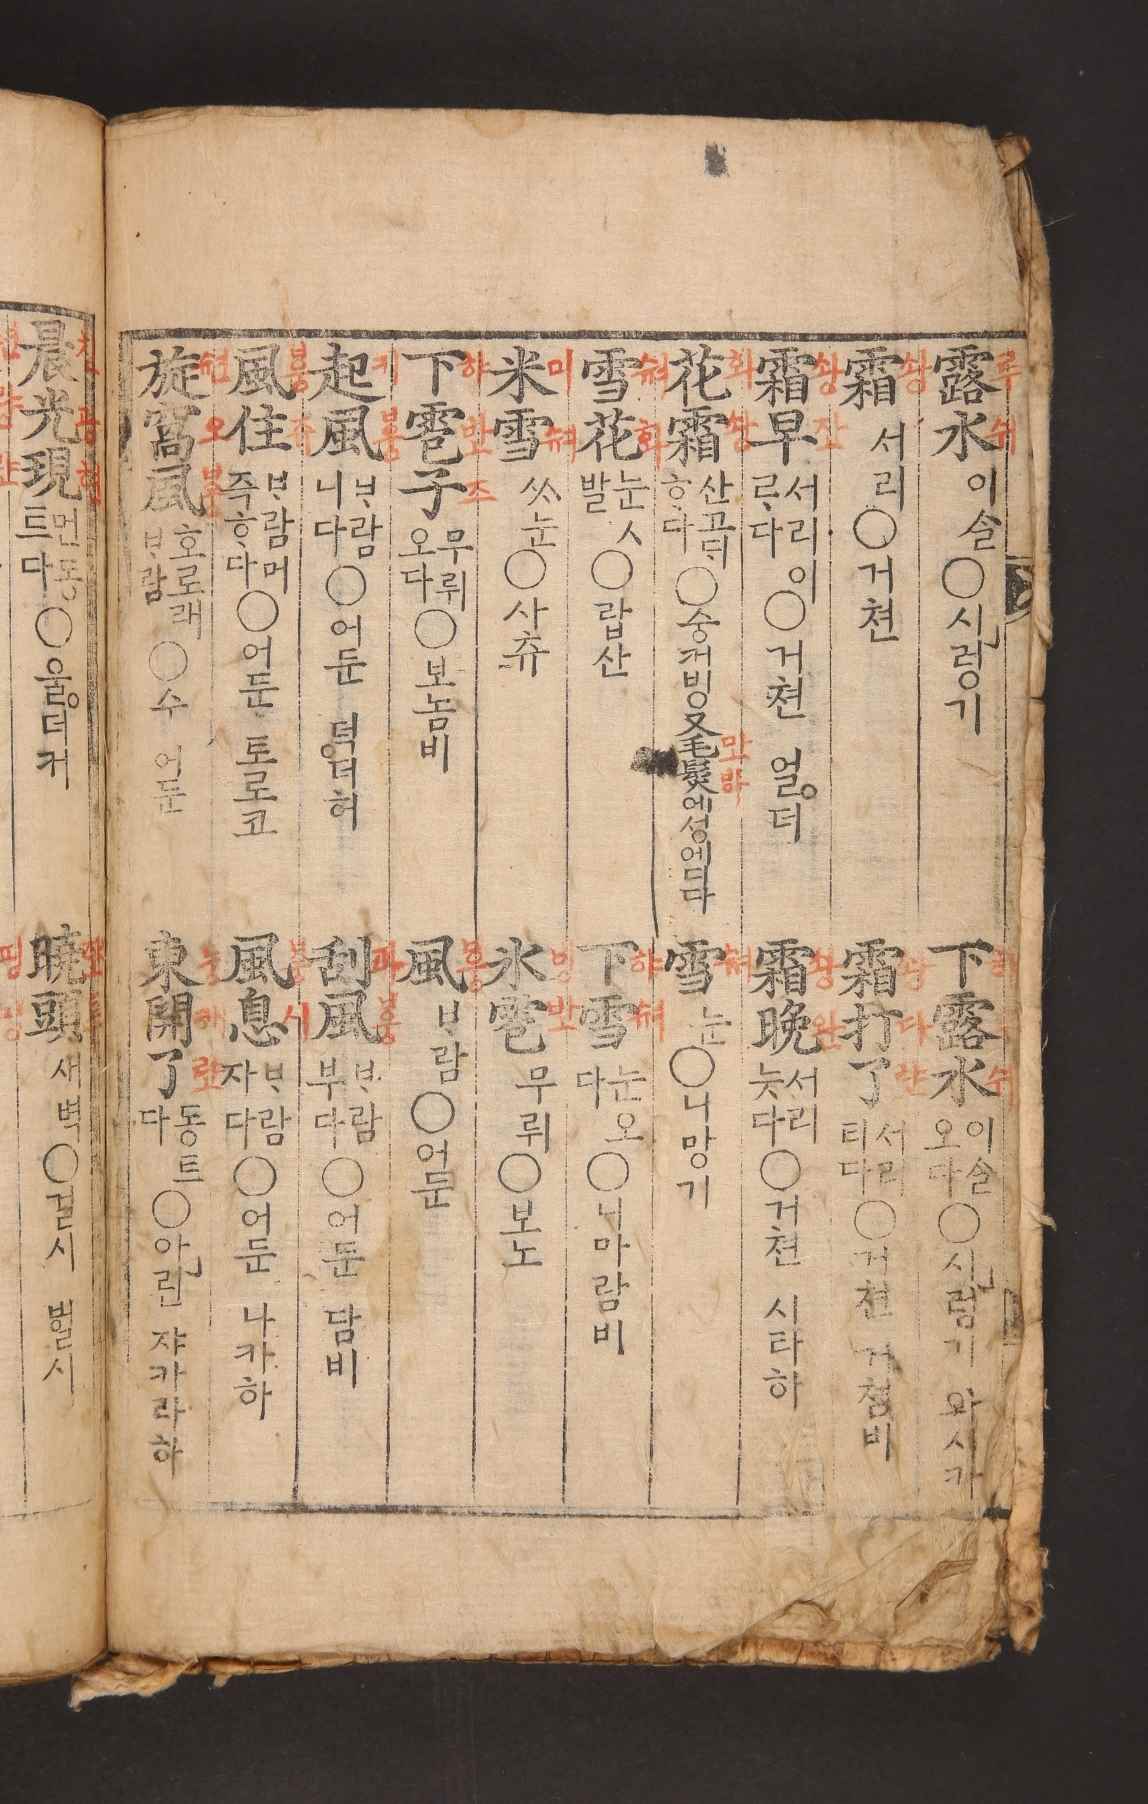 露水 이슬○시렁기
下露水 이슬오다○시렁기 와시카
霜 서리○거쳔
霜打了 서리티다○거쳔 거첨비
霜早 서리 이르다○거쳔 얼더
霜晩 서리늣다○거쳔 시타하
花霜 산고ᄃᆡᄒᆞ다○숭거빙又毛髮에성에디다
雪 눈○니망기
雪花 눈ㅅ발○랍산
下雪 눈오다○니마람비
米雪 ᄡᆞ눈○사츄
氷雹 무뤼○보노
下雹子 무뤼오다○보놈비
風 ᄇᆞ람○어둔
起風 ᄇᆞ람니다○어둔 덕더허
刮風 ᄇᆞ람부다○어둔 담비
風住 ᄇᆞ람머즉ᄒᆞ다○어둔 토로코
風息 ᄇᆞ람자다○어둔 나카하
旋窩風 호로래ᄇᆞ람○수 어둔
東開了 동트다○아린 쟈카라하
晨光現 먼동트다○울더커
曉頭 새벽○걸시 벌시